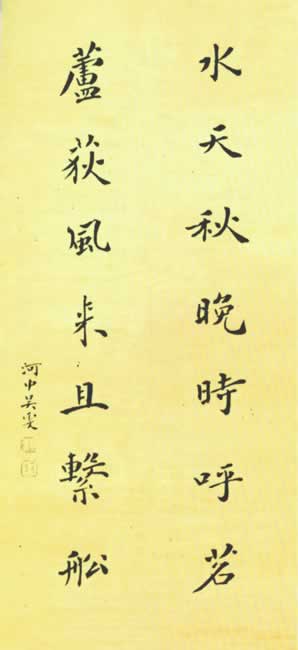 水天秋晚時呼茗
蘆荻風来且繫舩
河中吴雯